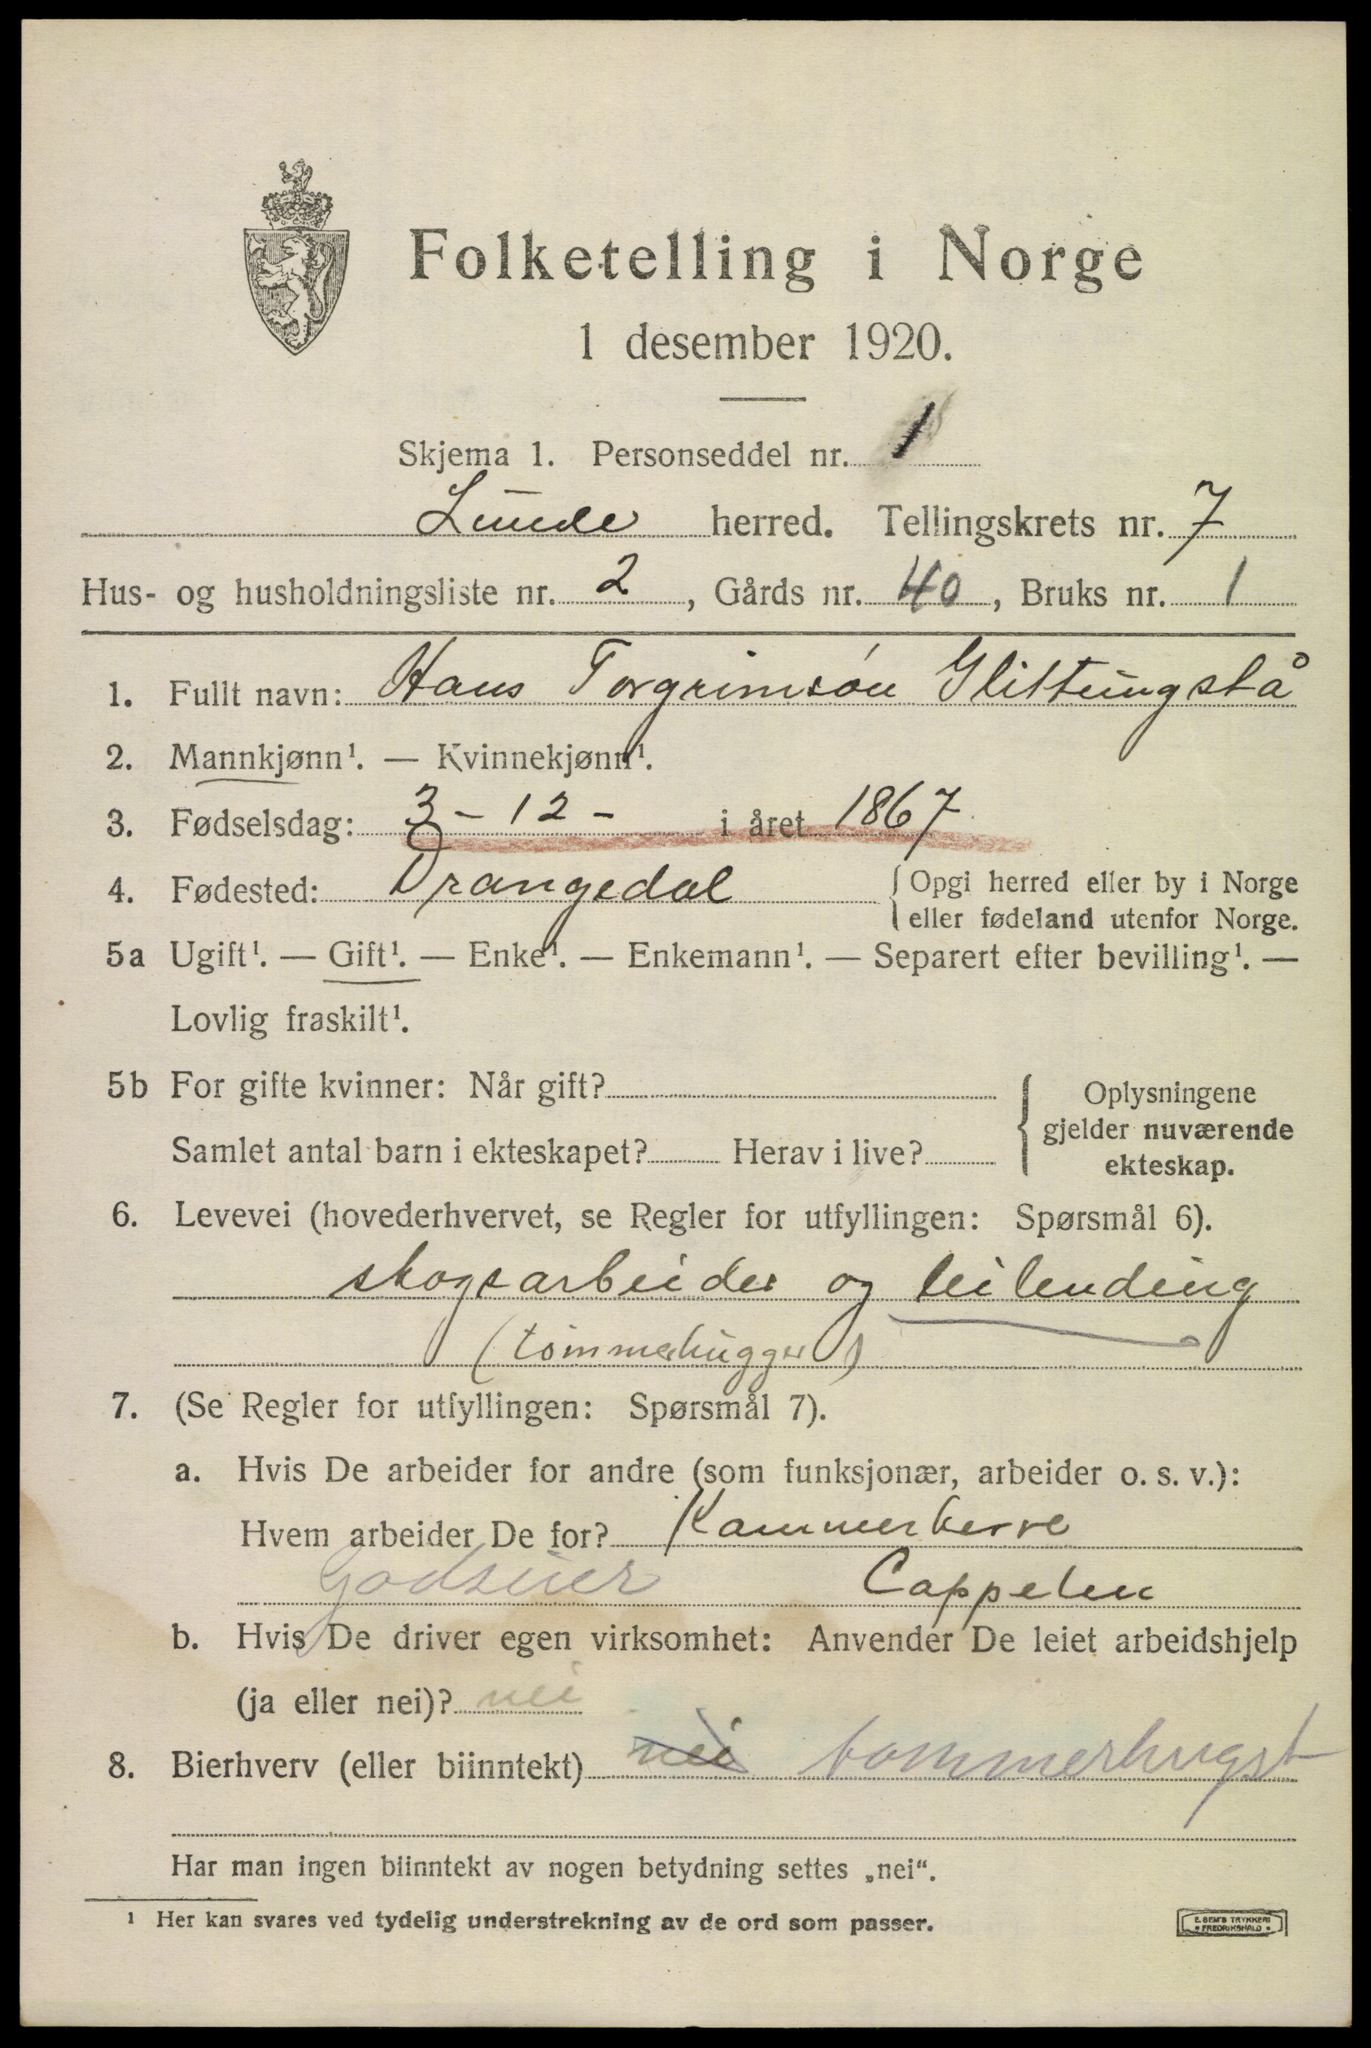 Folketelling i Norge
1 desember 1920.
Skjema 1. Personseddel nr. 1
Lunde herred. Tellingskrets nr. 7
Hus- og husholdningsliste nr. 2, Gårds nr. 40, Bruks nr. 1
1. Fullt navn: Hans Torgrimsøn Glittungstå
2. Mannkjønn¹. — Kvinnekjønn¹.
3. Fødselsdag: 3 - 12 - i året 1867
4. Fødested: Drangedal {Opgi herred eller by i Norge
eller fødeland utenfor Norge.
5a Ugift¹. — Gift¹. — Enke¹. — Enkemann¹. — Separert efter bevilling¹. —
Lovlig fraskilt¹.
5b For gifte kvinner: Når gift?
Samlet antal barn i ekteskapet? Herav i live?
{ Oplysningene
gjelder nuværende
ekteskap.
6. Levevei (hovederhvervet, se Regler for utfyllingen: Spørsmål 6).
skogsarbeider og leilending
(tømmerhugger)
7. (Se Regler for utfyllingen: Spørsmål 7).
a. Hvis De arbeider for andre (som funksjonær, arbeider o. s. v.):
Hvem arbeider De for? Kammerherre
Godseier Cappelen
b. Hvis De driver egen virksomhet: Anvender De leiet arbeidshjelp
(ja eller nei)? nei
8. Bierhverv (eller biinntekt) nei tommerhugst
Har man ingen biinntekt av nogen betydning settes „nei“.
¹ Her kan svares ved tydelig understrekning av de ord som passer.
E. SEM'S TRYKKERI
• FREDRIKSHALD •